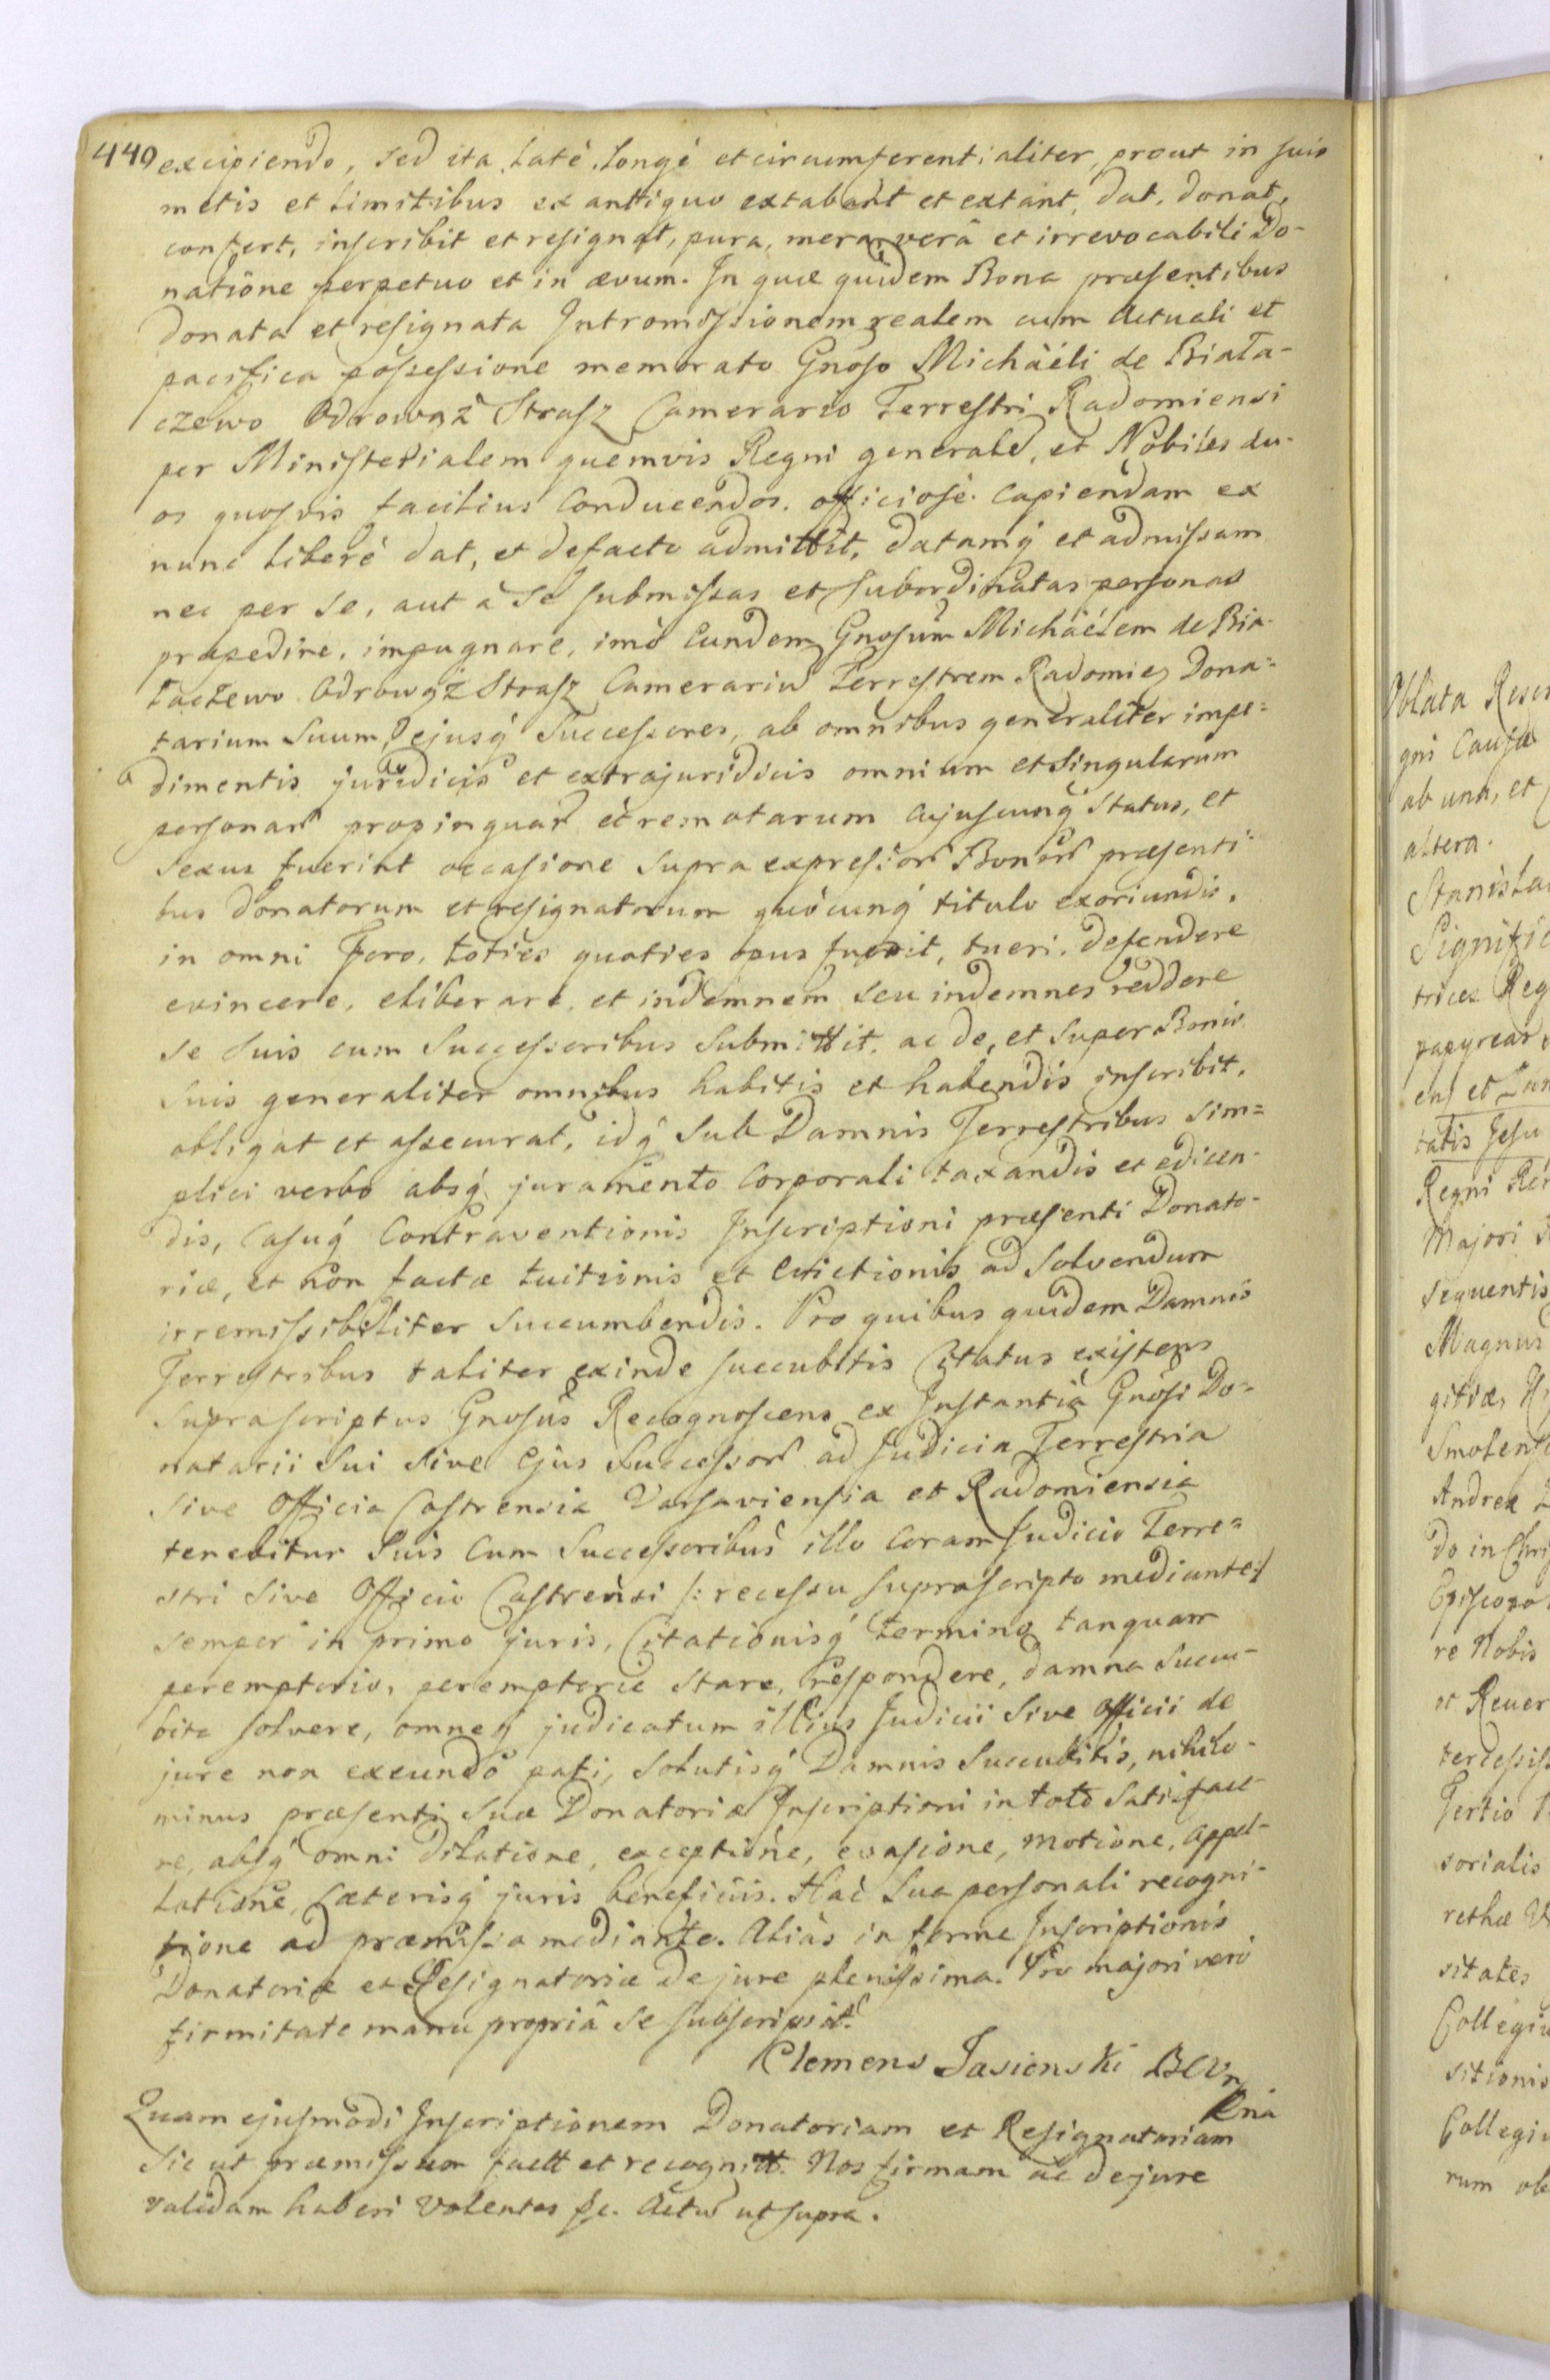 440 excipiendo, sed ita latè longè et circumferentialiter, prout in suis
metis et limitibus ex anttiquo extabant et extant, dat, donat,
confert, inscribit et resignat, pura, mera, verâ et irrevocabili Do-
natione perpetuo et in ævum. In quæ quidem Bona præsentibus
donata et resignata Intromissionem realem cum actuali et
pacifica possessione memorato Gnoso Michäéli de Biała-
czewo Odrowąż Strasz Camerario Terrestri Radomiensi
per Ministerialem quemvis Regni generale, et Nobiles du-
os quosvis facilius Conducendos, officiosè Capiendam ex
nunc liberè dat, et defacto admittit, datamq́ et admissam
nec per se, aut à se submissas et subordinatas personas
præpedire, impugnare, imò Eundem Gnosum Michäélem de Bia-
łaczewo Odrowąż Strasz Camerariu Terrestrem Radomien Dona-
tarium Suum, ejusq́ Successores, ab omnibus generaliter impe-
dimentis juridicis et extrajuridicis omnium et singularum
personar propinquar et remotarum cujuscunq́ Status, et
sexus fuerint occasione supra expressor Bonor præsenti-
bus donatorum et resignatorum quòcunq́ titulo exoriundis,
in omni Foro, toties quoties opus fuerit, tueri, defendere
evincere, eliberare, et indemnem seu indemnes reddere
se suis cum Successoribus submittit, ac de, et super Bonis
suis generaliter omnibus habitis et habendis inscribit,
obligat et assecurat, idq́ sub Damnis Terrestribus sim-
plici verbo absq́ juramento Corporali taxandis et edicen-
dis, Casuq́ Contraventionis Inscriptioni præsenti Donato-
riæ, et non factæ tuitionis et Evictionis ad solvendum
irremissibiliter succumbendis. Pro quibus quidem Damnis
Terrestribus taliter exinde succubitis Citatus existens
suprascriptus Gnosus Recognoscens ex Instantiâ Gnosi Do-
natarii sui sive Ejus Successor ad Judicia Terrestria
sive Officia Castrensia Varsaviensia et Radomiensia
tenebitur suis Cum Successoribus illo Coram Judicio Terre-
stri sive Officio Castrensi /: recessu suprascripto mediante :/
semper in primo juris, Citationisq́ termino tanquam
peremptorio, peremptorie stare, respondere, damna succu-
bita solvere, omneq́ judicatum illius Judicii sive Officii de
jure non exeundo pati, solutisq́ Damnis succubitis, nihilo-
minus præsenti suæ Donatoriæ Inscriptioni in toto satisface-
re, absq́ omni dilatione, exceptione, evasione, motione, appel-
latione, Cæterisq́ juris beneficiis. Hac sua personali recogni-
tione ad præmissa mediante. Aliàs in forma Inscriptionis
Donatoriæ et Resignatoriæ de jure plenissima. Pro majori verò
firmitate manu propriâ se subscripsit.
Clemens Jasienski
Quam ejusmodi Inscriptionem Donatoriam et Resignatoriam
sic ut præmissum factt et recognitt. Nos firmam ac de jure
validam haberi volentes &c. Actu ut supra.
Oblata
gni Causæ
ab una, et
altera.
trices Reg
ens et
tatis Jesu
Regni
Majori
sequentis
Magnus
gitiæ,
Andrea
Do in Chri
Episcopo
re Nobis
et Rever
Tertio
sorialis
rethæ
sitates
Collegiu
sitionis
Collegi
rum